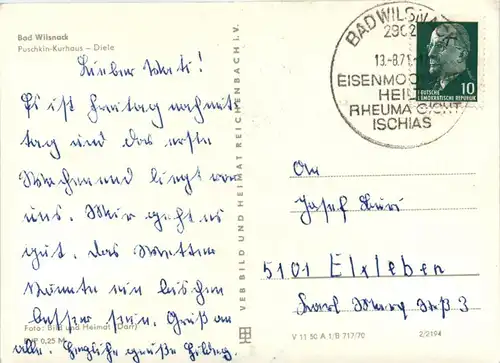 Bad Wilsnack
Puschkin-Kurhaus – Diele
Lieber Vati!
Es ist Freitag nachmit
tag und das erste
Wochenend liegt vor
uns. Mir geht es
gut. Das Wetter
könnte ein bischen
besser sein. Gruß an
alle. Herzliche Grüße
Foto: Bild und Heimat (Darr)
EVP 0,25 M
VEB BILD UND HEIMAT REICHENBACH I. V.
BAD WILSNACK
2902
13.-8.71
EISENMOOR
HEIL
RHEUMA GICHT
ISCHIAS
10
DEUTSCHE
DEMOKRATISCHE REPUBLIK
An
Josef
5101 Elxleben
Karl Marx Str 3
V 11 50 A 1/B 717/70
2/2194